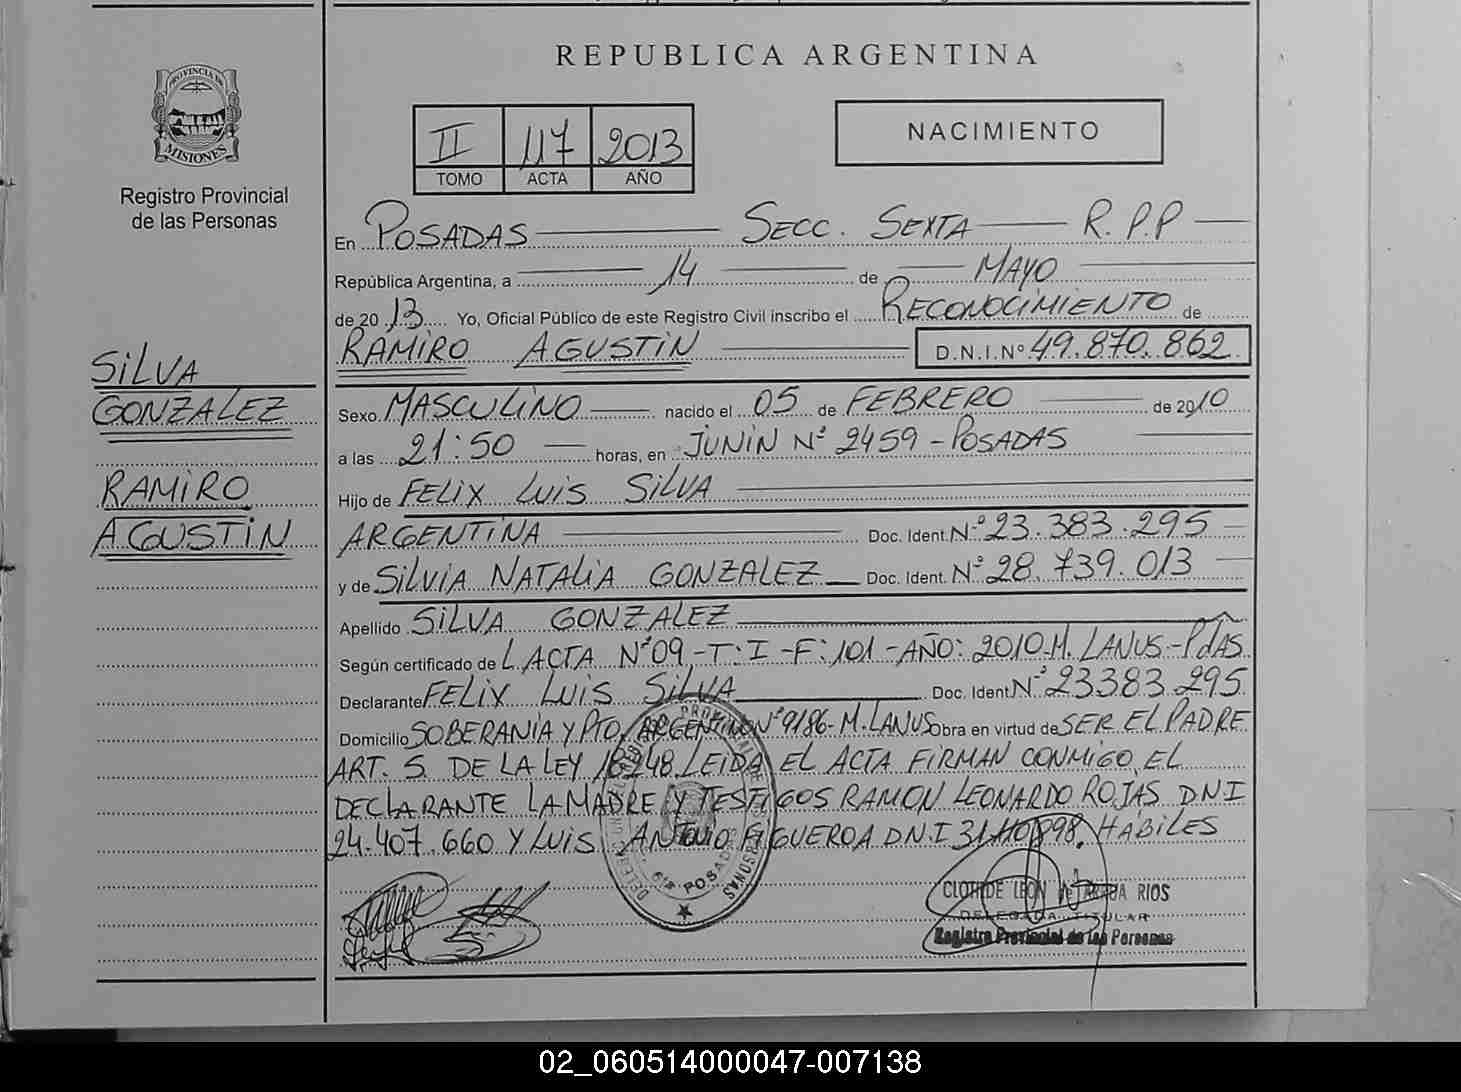 REPUBLICA ARGENTINA
PROVINCIA DE
MISIONES
Registro Provincial
de las Personas
II 117 2013
TOMO ACTA AÑO
NACIMIENTO
En POSADAS SECC. SEXTA R.P.P
República Argentina, a 14 de MAYO
de 20 13 Yo, Oficial Público de este Registro Civil inscribo el RECONOCIMIENTO de
RAMIRO AGUSTIN D.N.I.Nº 49.870.862
SILVA
GONZALEZ
RAMIRO
AGUSTIN
Sexo MASCULINO nacido el 05 de FEBRERO de 2010
a las 21:50 horas, en JUNIN Nº 2459 - POSADAS
Hijo de FELIX LUIS SILVA
ARGENTINA Doc. Ident. Nº 23.383.295
y de SILVIA NATALIA GONZALEZ Doc. Ident. Nº 28.739.013
Apellido SILVA GONZALEZ
Según certificado de L ACTA Nº 09 - T: I - F: 101 - AÑO: 2010 - M. LANUS - PdAS
Declarante FELIX LUIS SILVA Doc. Ident. Nº 23383.295
Domicilio SOBERANIA Y PTO. ARGENTINO Nº 9186 - M. LANUS Obra en virtud de SER EL PADRE
ART. 5 DE LA LEY 18248. LEIDA EL ACTA FIRMAN CONMIGO EL
DECLARANTE LA MADRE Y TESTIGOS RAMON LEONARDO ROJAS DNI
24.407.660 Y LUIS ANTONIO FIGUEROA D.N.I 31.110.898. HÁBILES
6ta POSADAS
CLOTILDE LEON RIOS
DELEGADA TITULAR
Registro Provincial de las Personas
02_060514000047-007138